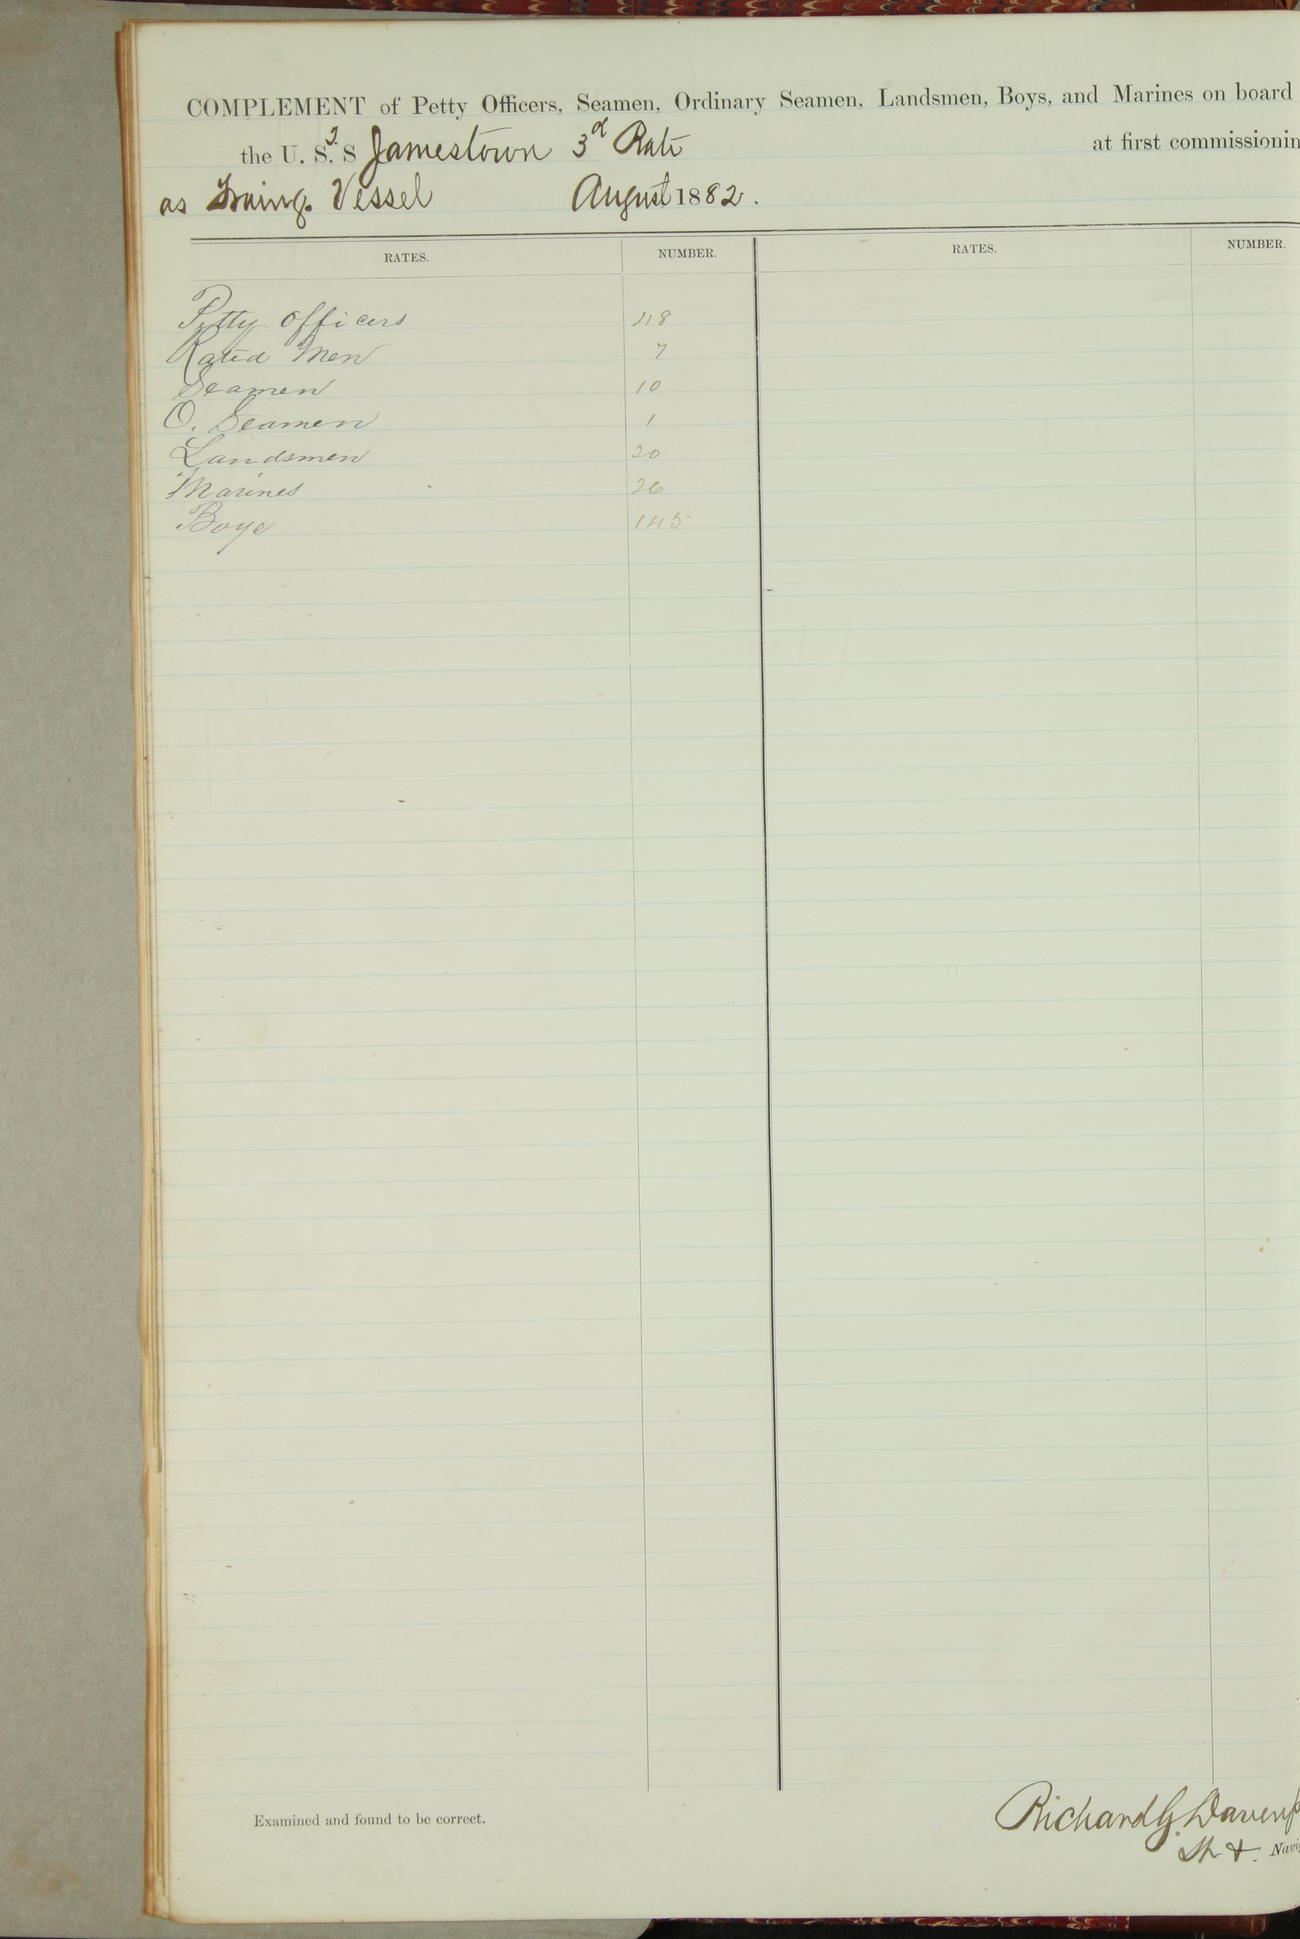 COMPLEMENT of Petty Officers, Seamen, Ordinary Seamen, Landsmen, Boys, and Marines on board
the U. S. S Jamestown 3d Rate at first commissionin
as Traing. Vessel August 1882.
RATES. NUMBER. RATES. NUMBER.
Petty Officers 48
Rated Men 7
Seamen 10
O. Seamen 1
Landsmen 20
Marines 26
Boys 145
Examined and found to be correct.
Richard G. Davenp
& Navig